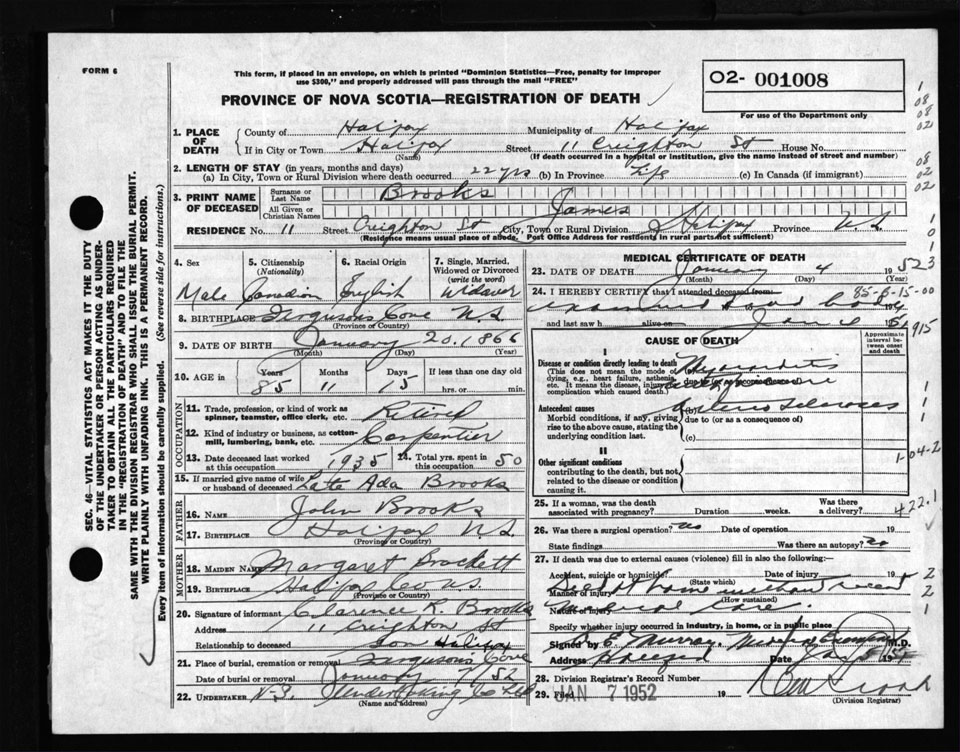 FORM 6
This form, if placed in an envelope, on which is printed "Dominion Statistics—Free, penalty for improper
use $300," and properly addressed will pass through the mail "FREE"
O2- 001008
For use of the Department only
PROVINCE OF NOVA SCOTIA—REGISTRATION OF DEATH
1. PLACE OF DEATH { County of Halifax Municipality of Halifax
If in City or Town Halifax Street 11 Creighton St House No.
(Name) (If death occurred in a hospital or institution, give the name instead of street and number)
2. LENGTH OF STAY (in years, months and days)
(a) In City, Town or Rural Division where death occurred 22 yrs (b) In Province Life (c) In Canada (if immigrant)
3. PRINT NAME OF DECEASED { Surname or Last Name Brooks
All Given or Christian Names James
RESIDENCE No. 11 Street Creighton St City, Town or Rural Division Halifax Province N.S.
(Residence means usual place of abode. Post Office Address for residents in rural parts not sufficient)
4. Sex 5. Citizenship (Nationality) 6. Racial Origin 7. Single, Married, Widowed or Divorced (write the word)
Male Canadian English Widower
8. BIRTHPLACE Fergusons Cove N.S.
(Province or Country)
9. DATE OF BIRTH January 20, 1866
(Month) (Day) (Year)
10. AGE in { Years Months Days If less than one day old
85 11 15 hrs. or min.
OCCUPATION
11. Trade, profession, or kind of work as spinner, teamster, office clerk, etc. Retired
12. Kind of industry or business, as cotton-mill, lumbering, bank, etc. Carpentier
13. Date deceased last worked at this occupation 1935 14. Total yrs. spent in this occupation 50
15. If married give name of wife or husband of deceased Late Ada Brooks
FATHER
16. Name John Brooks
17. Birthplace Halifax N.S.
(Province or Country)
MOTHER
18. Maiden Name Margaret Brackett
19. Birthplace Halifax Co N.S.
(Province or Country)
20. Signature of informant Clarence R. Brooks
Address 11 Creighton St
Relationship to deceased Son Halifax
21. Place of burial, cremation or removal Fergusons Cove
Date of burial or removal January 7/52
22. Undertaker N.S. Undertaking Co Ltd
(Name and address)
MEDICAL CERTIFICATE OF DEATH
23. DATE OF DEATH January 4 1952
(Month) (Day)
24. I HEREBY CERTIFY that I attended deceased from
85-8-15-00
examined dead body
and last saw h alive on Jan 4 19
CAUSE OF DEATH
Approximate interval between onset and death
I
Disease or condition directly leading to death
(This does not mean the mode of dying, e.g., heart failure, asthenia, etc. It means the disease, injury or complication which caused death.)
(a) Myocarditis
due to (or as a consequence of)
Antecedent causes
Morbid conditions, if any, giving rise to the above cause, stating the underlying condition last.
(b) Arterio Sclerosis
due to (or as a consequence of)
(c)
II
Other significant conditions
contributing to the death, but not related to the disease or condition causing it.
25. If a woman, was the death associated with pregnancy? Duration weeks. Was there a delivery?
26. Was there a surgical operation? no Date of operation 19
State findings Was there an autopsy? no
27. If death was due to external causes (violence) fill in also the following:-
Accident, suicide or homicide? Date of injury 19
(State which)
Manner of injury
(How sustained)
Nature of injury medical care.
Specify whether injury occurred in industry, in home, or in public place
Signed by E Murray Medical Examiner M.D.
Address Halifax Date Jan 19
28. Division Registrar's Record Number
29. Filed JAN 7 1952 19
(Division Registrar)
1-04-2
422.1
SEC. 46—VITAL STATISTICS ACT MAKES IT THE DUTY
OF THE UNDERTAKER OR PERSON ACTING AS UNDER-
TAKER TO OBTAIN ALL THE PARTICULARS REQUIRED
IN THE "REGISTRATION OF DEATH" AND TO FILE THE
SAME WITH THE DIVISION REGISTRAR WHO SHALL ISSUE THE BURIAL PERMIT.
WRITE PLAINLY WITH UNFADING INK. THIS IS A PERMANENT RECORD.
Every item of information should be carefully supplied. (See reverse side for instructions.)